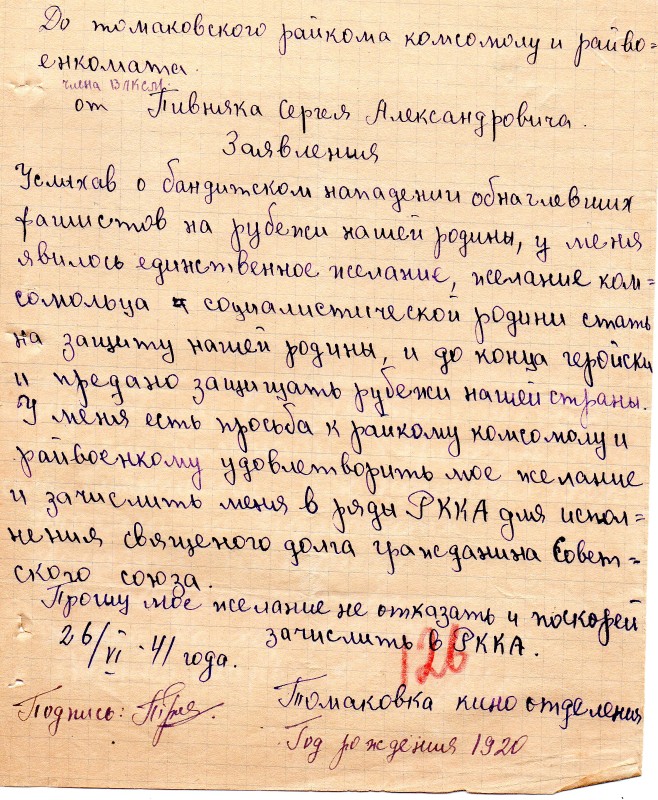 До томаковского райкома комсомолу и райво=
енкомата.
члена ВЛКСМ.
от Пивняка Сергея Александровича.
Заявления
Услыхав о бандитском нападении обнаглевших
фашистов на рубежи нашей родины, у меня
явилось единственное желание, желание ком=
сомольца социалистической родини стать
на защиту нашей родины, и до конца геройски
и предано защищать рубежи нашей страны.
У меня есть просьба к райкому комсомолу и
райвоенкому удовлетворить мое желание
и зачислить меня в ряды РККА для испол=
нения священого долга гражданина Совет=
ского союза.
Прошу мое желание не отказать и поскорей
зачислить в РККА.
26/VI-41 года.
126
Томаковка кино отделения
Подпись:
Год рождения 1920